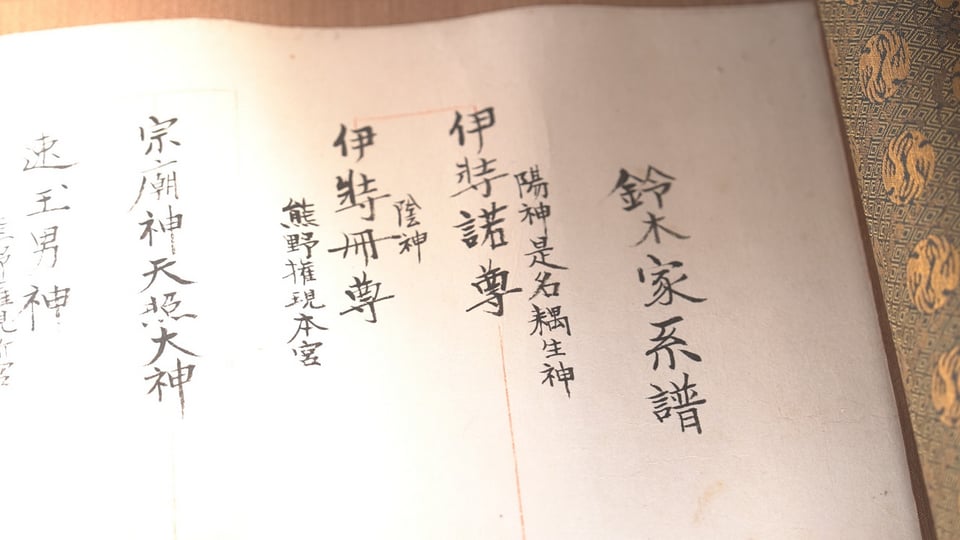 鈴木家系譜
陽神是名耦生神
伊弉諾尊
陰神
伊弉冊尊
熊野権現本宮
宗廟神天照大神
速玉男神